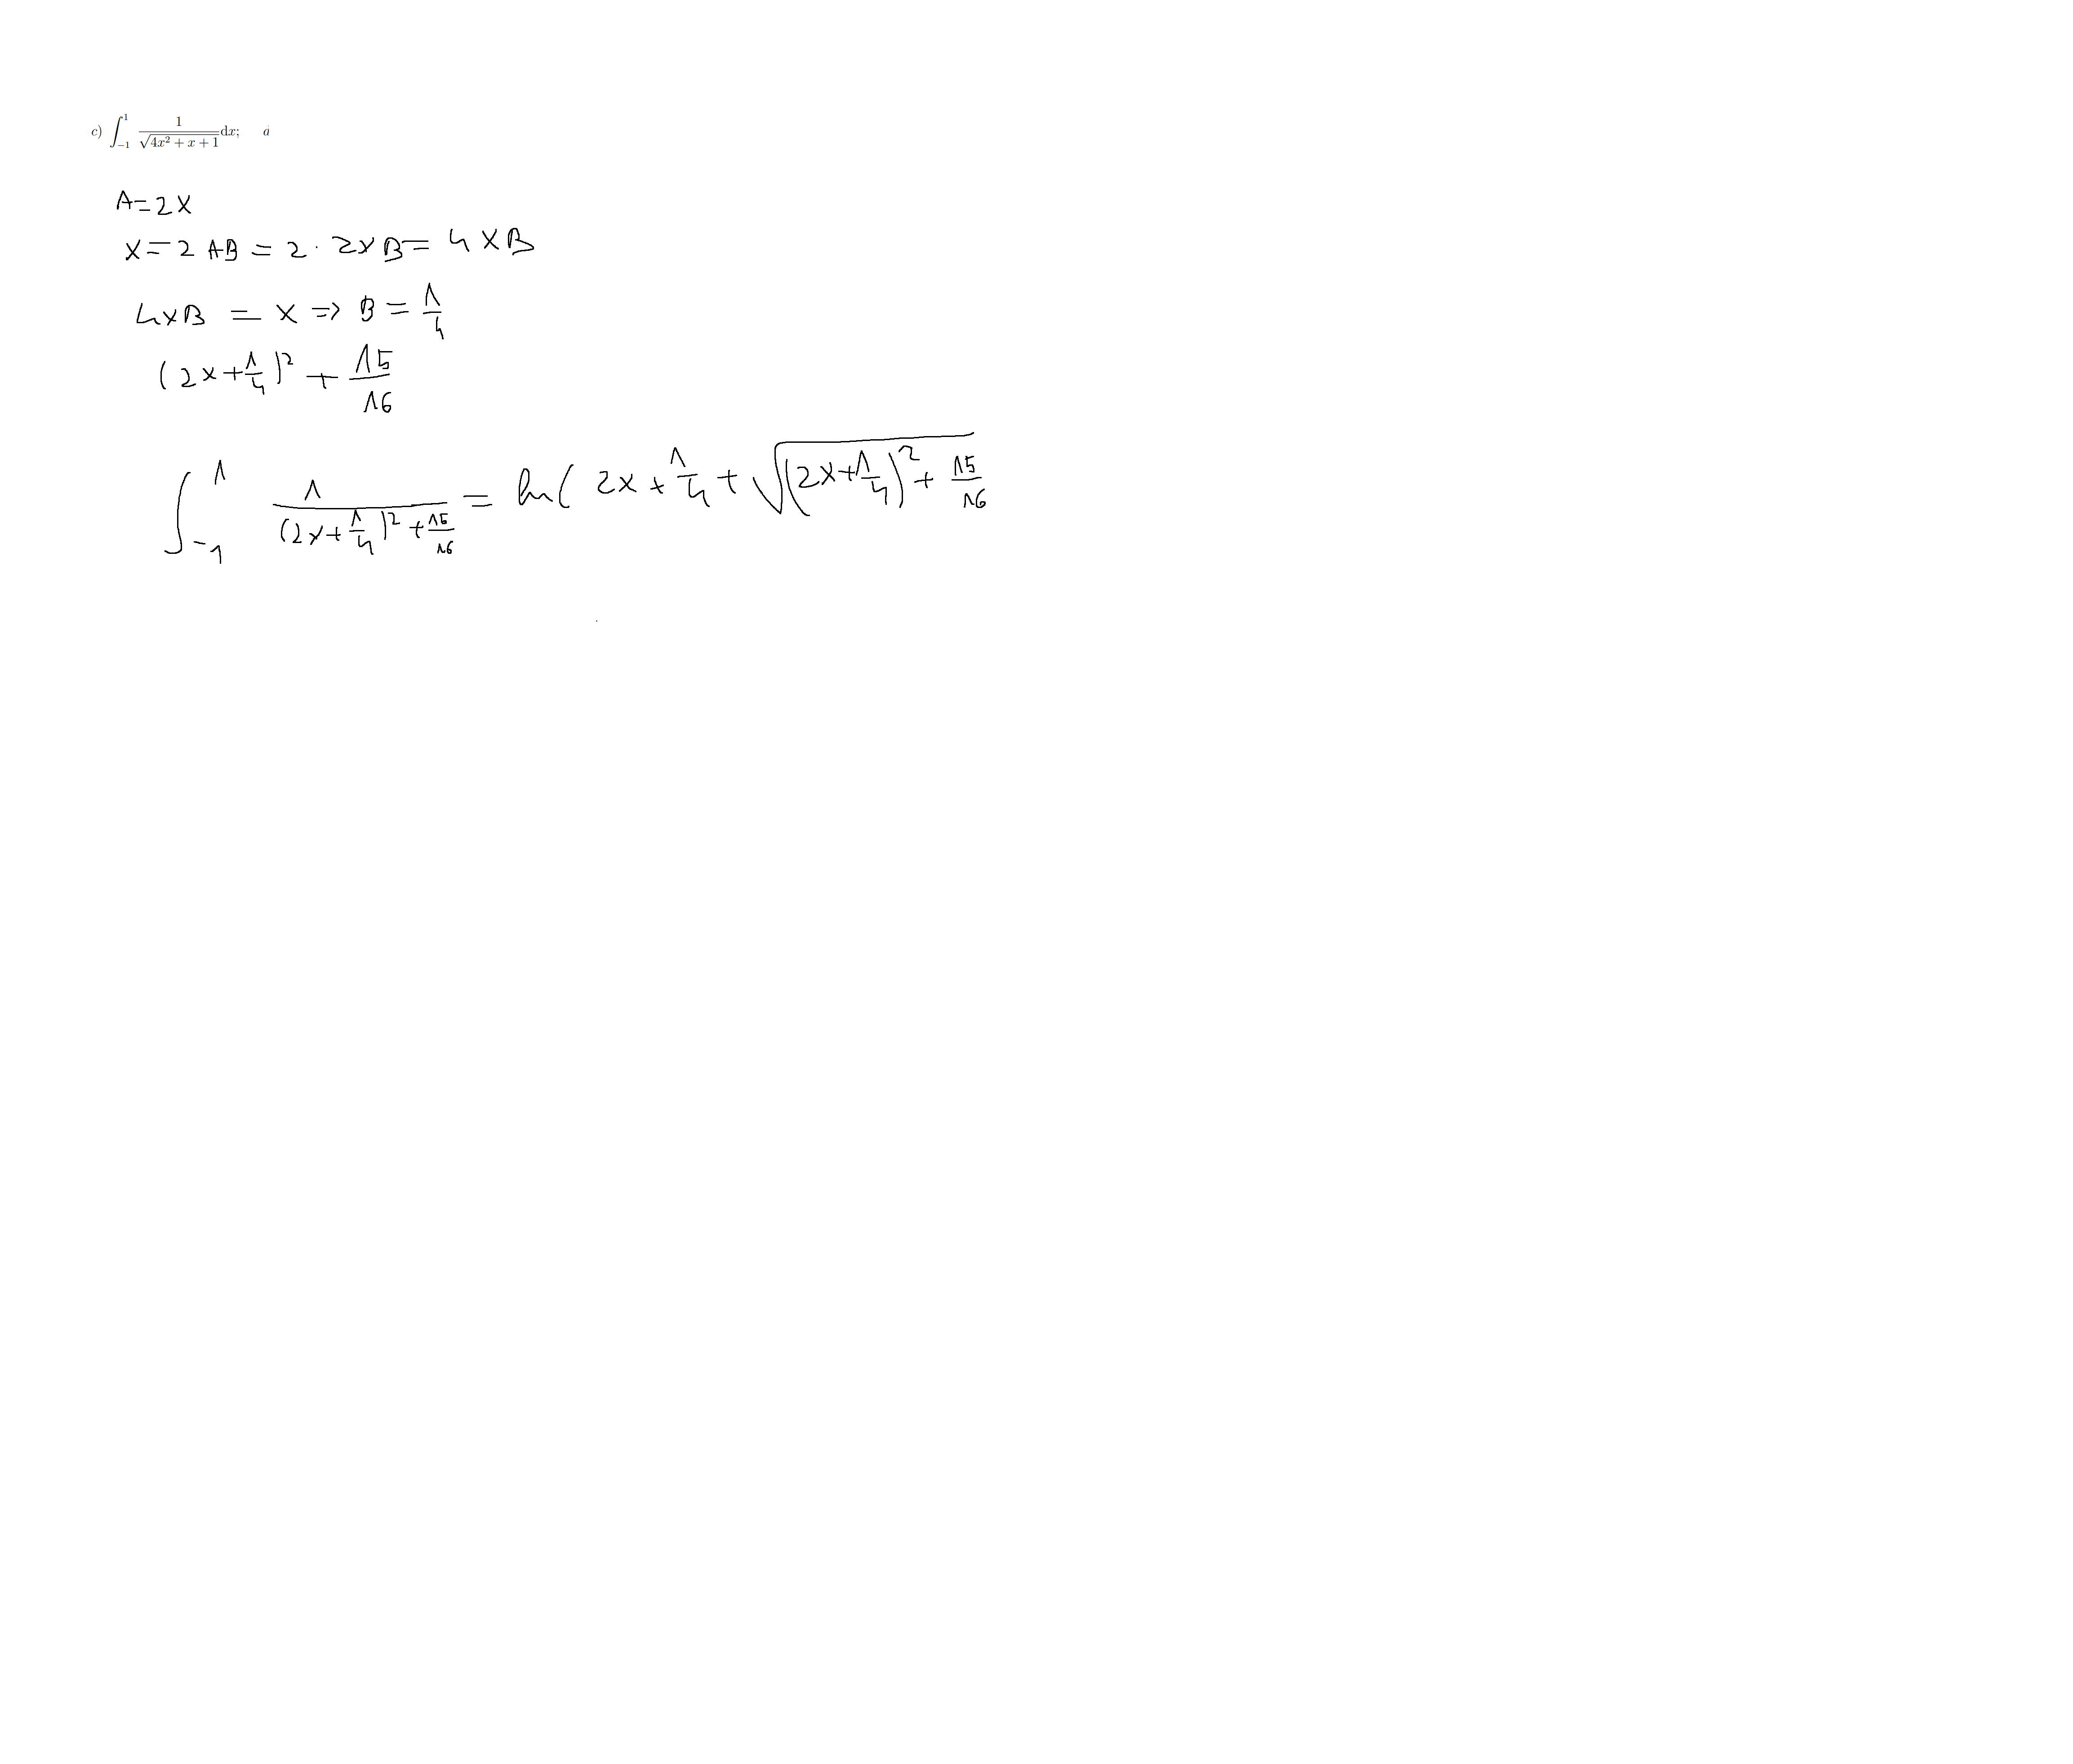 c) ∫₋₁¹ 1/√(4x² + x + 1) dx; d
A = 2x
x = 2AB = 2 · 2xB = 4xB
4xB = x ⇒ B = 1/4
(2x + 1/4)² + 15/16
∫₋₁¹ 1/((2x + 1/4)² + 15/16) = ln( 2x + 1/4 + √((2x + 1/4)² + 15/16)